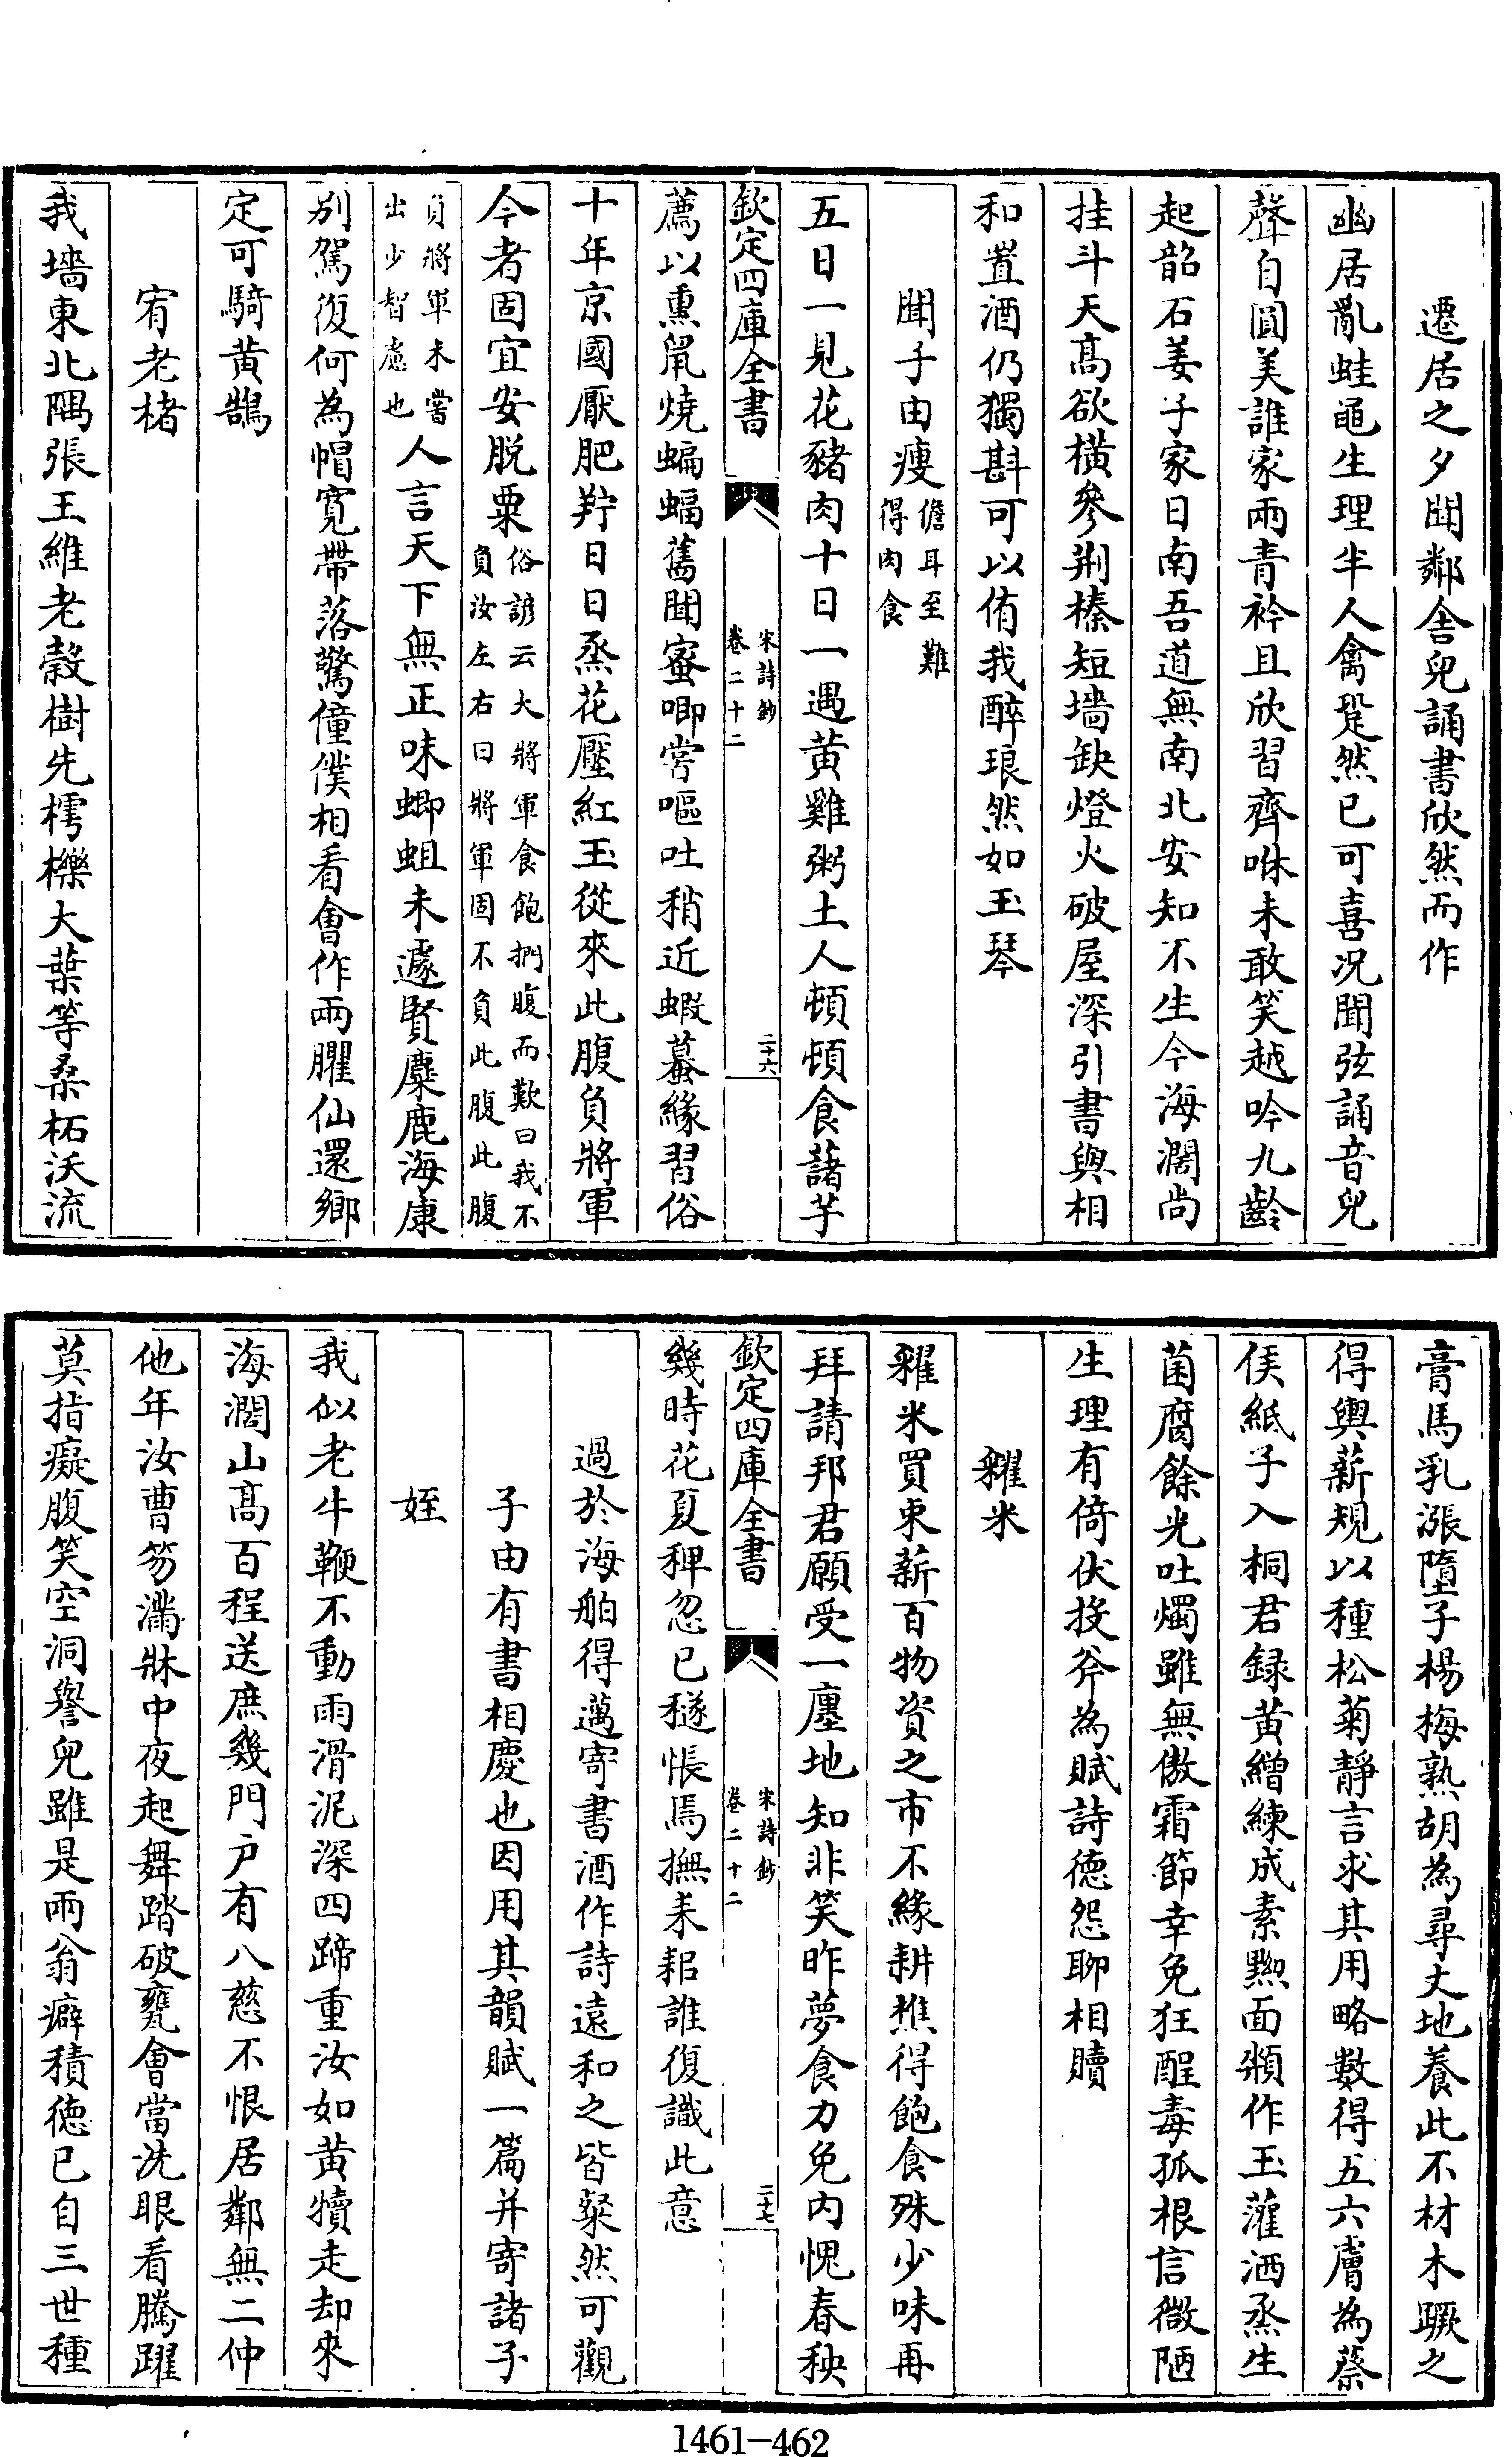 遷居之夕聞鄰舍兒誦書欣然而作
幽居亂蛙黽生理半人禽跫然已可喜况聞弦誦音兒
聲自圓美誰家兩青衿且欣習齊咻未敢笑越吟九齡
起韶石姜子家日南吾道無南北安知不生今海濶尚
挂斗天髙欲橫參荆榛短墻缺燈火破屋深引書與相
和置酒仍獨斟可以侑我醉琅然如玉琴
聞子由瘦儋耳至難
得肉食
五日一見花豬肉十日一遇黄雞粥土人頓頓食藷芋
欽定四庫全書
宋詩鈔
卷二十二
二十六
薦以熏鼠燒蝙蝠舊聞蜜唧嘗嘔吐稍近蝦蟇緣習俗
十年京國厭肥羜日日烝花壓紅玉從來此腹負將軍
今者固宜安脱粟俗諺云大將軍食飽捫腹而歎曰我不
負汝左右曰將軍固不負此腹此腹
負將軍未嘗
出少智慮也人言天下無正味蝍蛆未遽賢麋鹿海康
别駕復何為帽寛帶落驚僮僕相看會作兩臞仙還鄉
定可騎黄鵠
宥老楮
我墻東北隅張王維老榖樹先樗櫟大葉等桑柘沃流
膏馬乳漲墮子楊梅熟胡為尋丈地養此不材木蹶之
得輿薪規以種松菊靜言求其用略數得五六膚為蔡
侯紙子入桐君録黄繒練成素黝面頮作玉灌洒烝生
菌腐餘光吐燭雖無傲霜節幸免狂酲毒孤根信微陋
生理有倚伏投斧為賦詩德怨聊相贖
糴米
糴米買束薪百物資之市不緣耕樵得飽食殊少味再
拜請邦君願受一廛地知非笑昨夢食力免内愧春秧
欽定四庫全書
宋詩鈔
卷二十二
二十七
幾時花夏稗忽已穟悵焉撫耒耜誰復識此意
過於海舶得邁寄書酒作詩遠和之皆粲然可觀
子由有書相慶也因用其韻賦一篇并寄諸子
姪
我似老牛鞭不動雨滑泥深四蹄重汝如黄犢走却來
海濶山髙百程送庶幾門戸有八慈不恨居鄰無二仲
他年汝曹笏滿牀中夜起舞踏破甕會當洗眼看騰躍
莫指癡腹笑空洞譽兒雖是兩翁癖積德已自三世種
1461-462